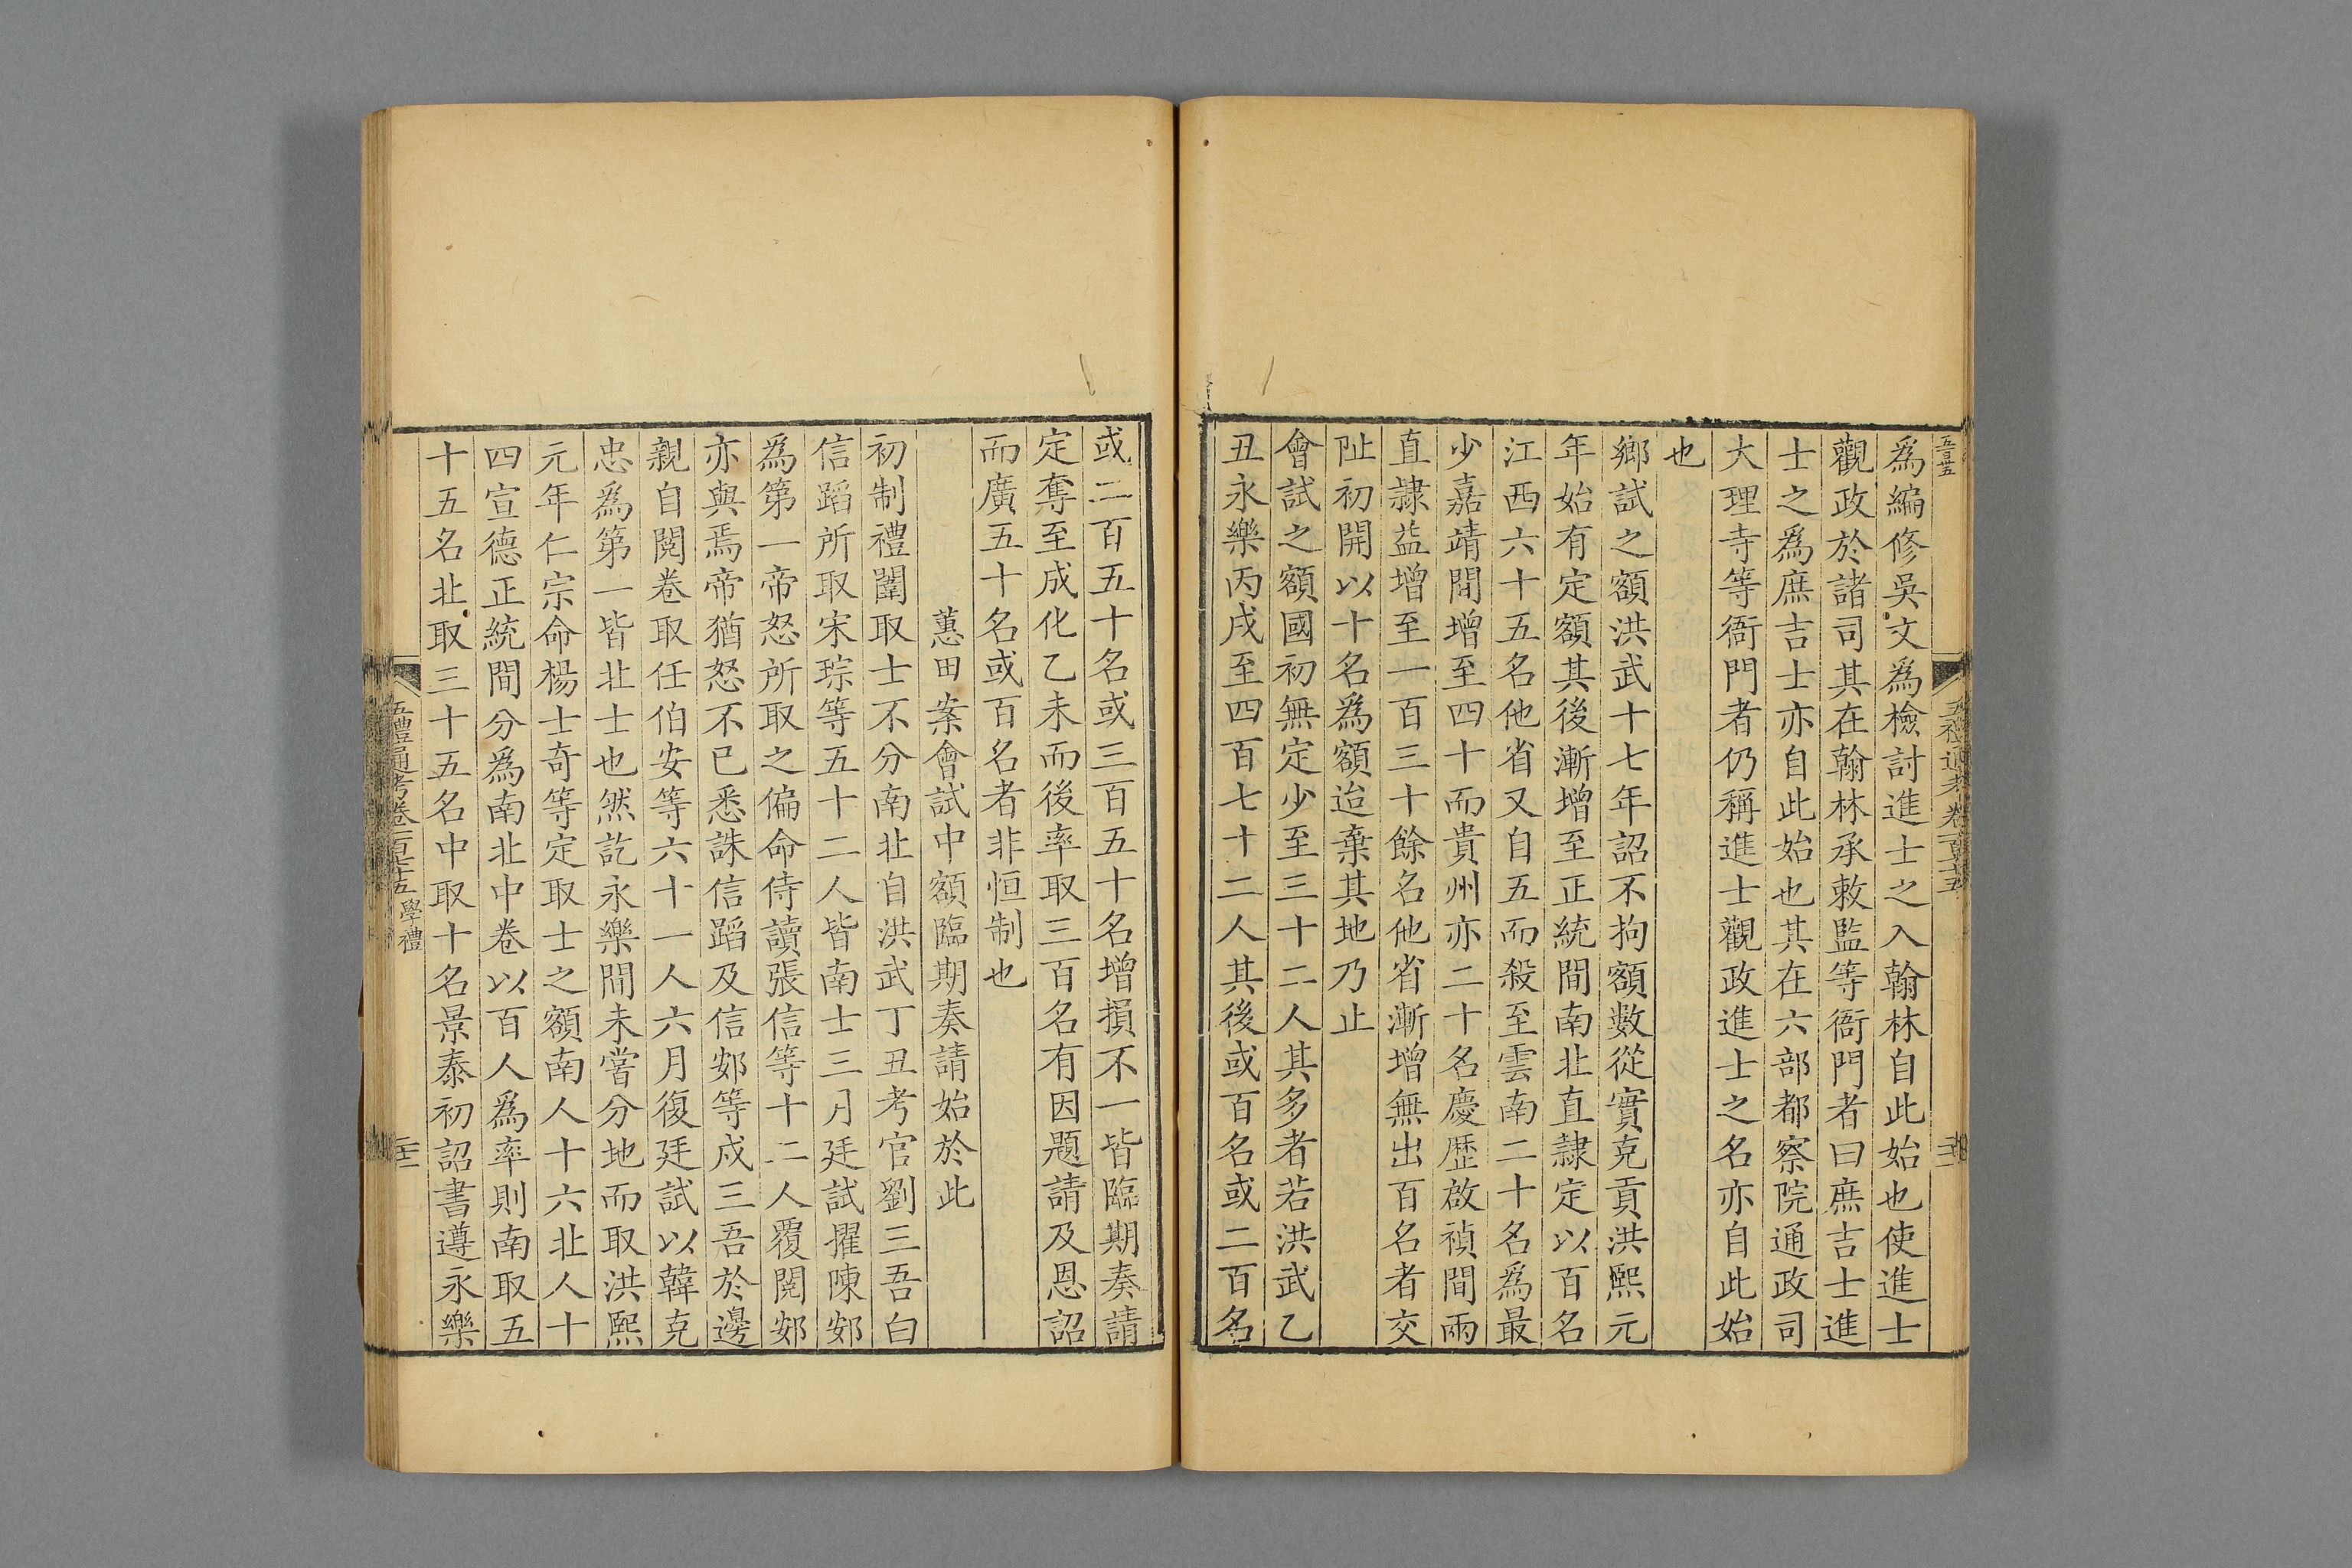 爲編修吳文爲檢討進士之入翰林自此始也使進士
觀政於諸司其在翰林承敕監等衙門者曰庶吉士進
士之爲庶吉士亦自此始也其在六部都察院通政司
大理寺等衙門者仍稱進士觀政進士之名亦自此始
也
鄉試之額洪武十七年詔不拘額數從實克貢洪熙元
年始有定額其後漸增至正統間南北直隸定以百名
江西六十五名他省又自五而殺至雲南二十名爲最
少嘉靖間增至四十而貴州亦二十名慶歷啟禎間兩
直隸益增至一百三十餘名他省漸增無出百名者交
阯初開以十名爲額迨棄其地乃止
會試之額國初無定少至三十二人其多者若洪武乙
丑永樂丙戌至四百七十二人其後或百名或二百名
或二百五十名或三百五十名增損不一皆臨期奏請
定奪至成化乙未而後率取三百名有因題請及恩詔
而廣五十名或百名者非恒制也
蕙田案會試中額臨期奏請始於此
初制禮闈取士不分南北自洪武丁丑考官劉三吾白
信蹈所取宋琮等五十二人皆南士三月廷試擢陳䢿
爲第一帝怒所取之偏命侍讀張信等十二人覆閱䢿
亦與焉帝猶怒不已悉誅信蹈及信䢿等戍三吾於邊
親自閱卷取任伯安等六十一人六月復廷試以韓克
忠爲第一皆北士也然訖永樂間未嘗分地而取洪熙
元年仁宗命楊士奇等定取士之額南人十六北人十
四宣德正統間分爲南北中卷以百人爲率則南取五
十五名北取三十五名中取十名景泰初詔書遵永樂
五禮通考卷一百七十五 學禮